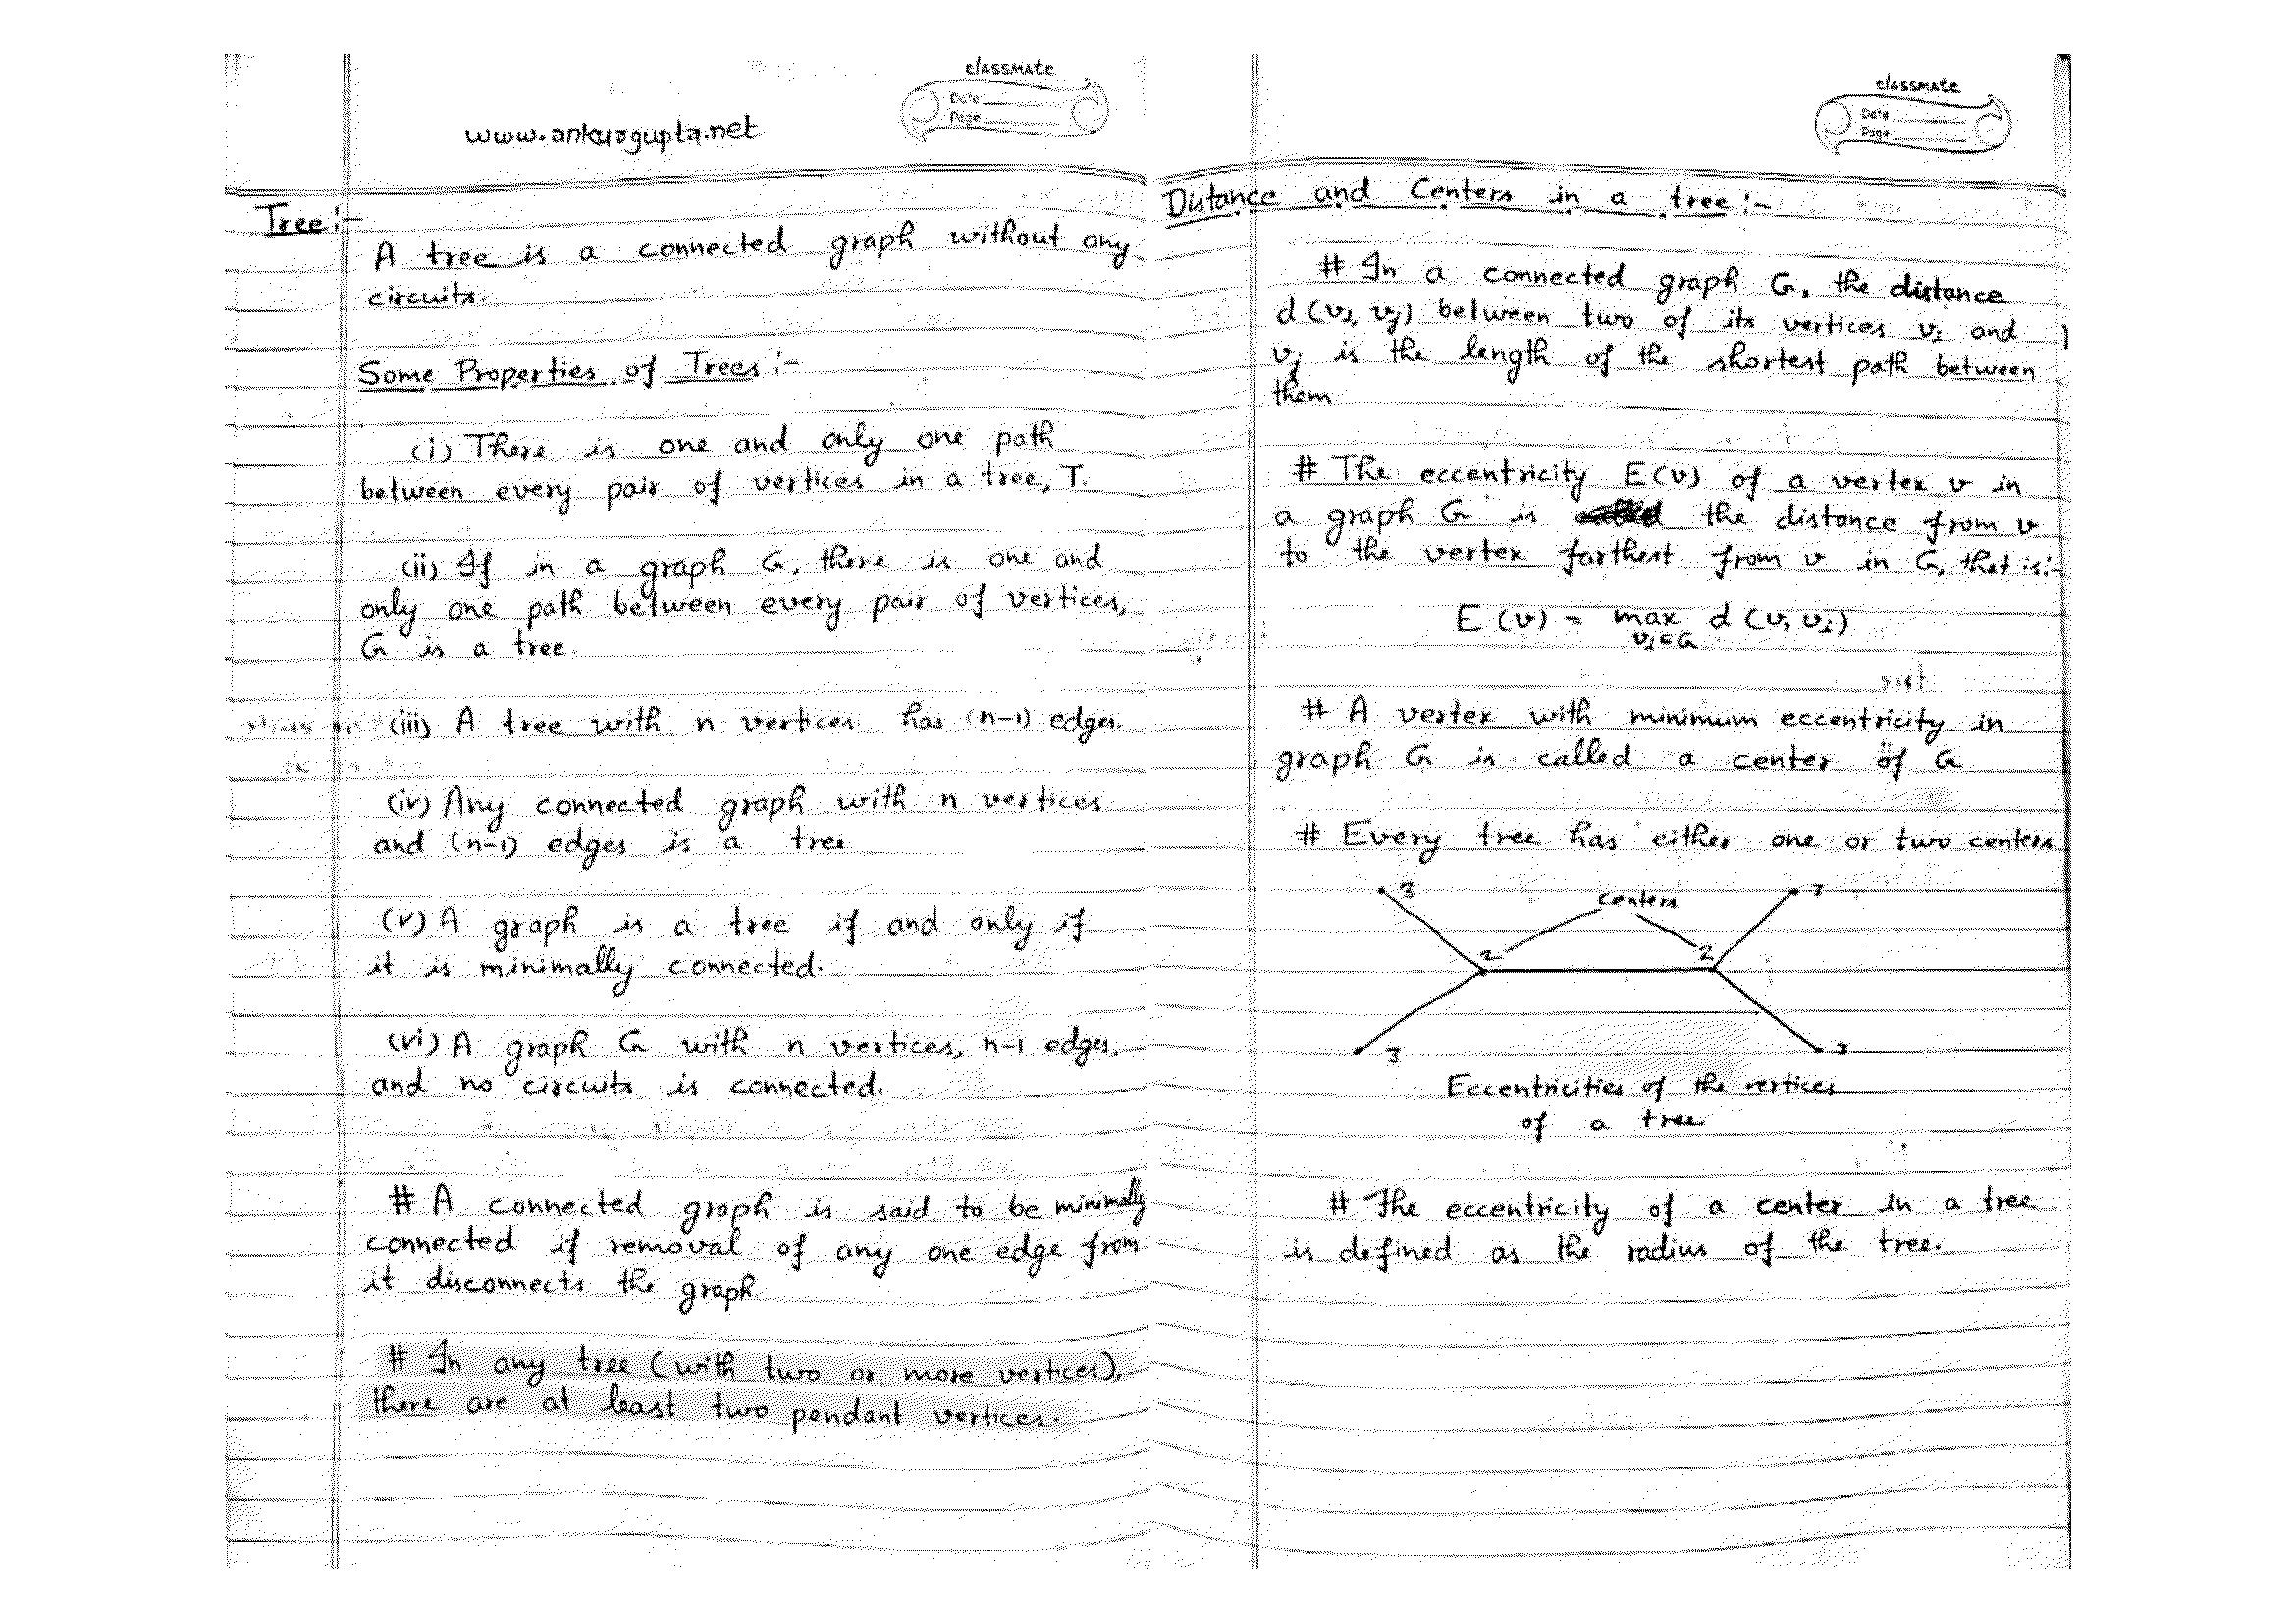 classmate
Date
Page
www.ankurgupta.net
Tree :-
A tree is a connected graph without any
circuits.
Some Properties of Trees :-
(i) There is one and only one path
between every pair of vertices in a tree, T.
(ii) If in a graph G, there is one and
only one path between every pair of vertices,
G is a tree.
(iii) A tree with n vertices has (n-1) edges.
(iv) Any connected graph with n vertices
and (n-1) edges is a tree
(v) A graph is a tree if and only if
it is minimally connected.
(vi) A graph G with n vertices, n-1 edges,
and no circuits is connected.
# A connected graph is said to be minimally
connected if removal of any one edge from
it disconnects the graph
# In any tree (with two or more vertices),
there are at least two pendant vertices.
classmate
Date
Page
Distance and Centers in a tree :-
# In a connected graph G, the distance
d(vi, vj) between two of its vertices vi and
vj is the length of the shortest path between
them
# The eccentricity E(v) of a vertex v in
a graph G is the distance from v
to the vertex farthest from v in G, that is:-
E(v) = max d(v, vi)
vi∈G
# A vertex with minimum eccentricity in
graph G is called a center of G
# Every tree has either one or two centers
3 Centers 3
2 2
3 3
Eccentricities of the vertices
of a tree
# The eccentricity of a center in a tree
is defined as the radius of the tree.